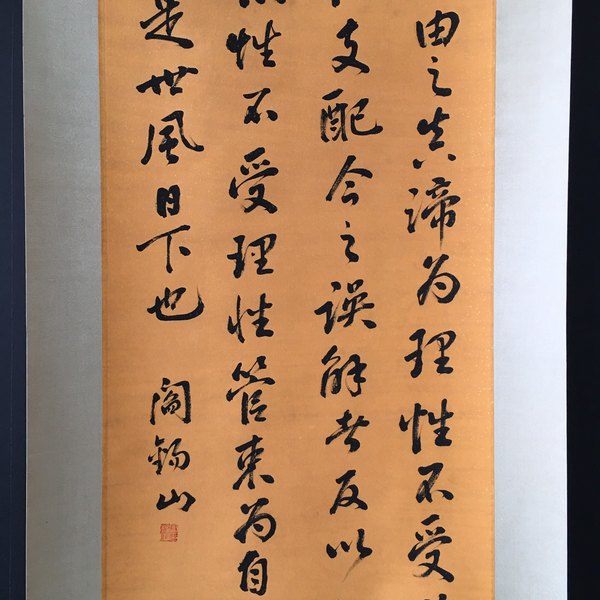 由之真諦為理性不受
支配今之誤解者反以
性不受理性管束為自
是世風日下也 閻錫山